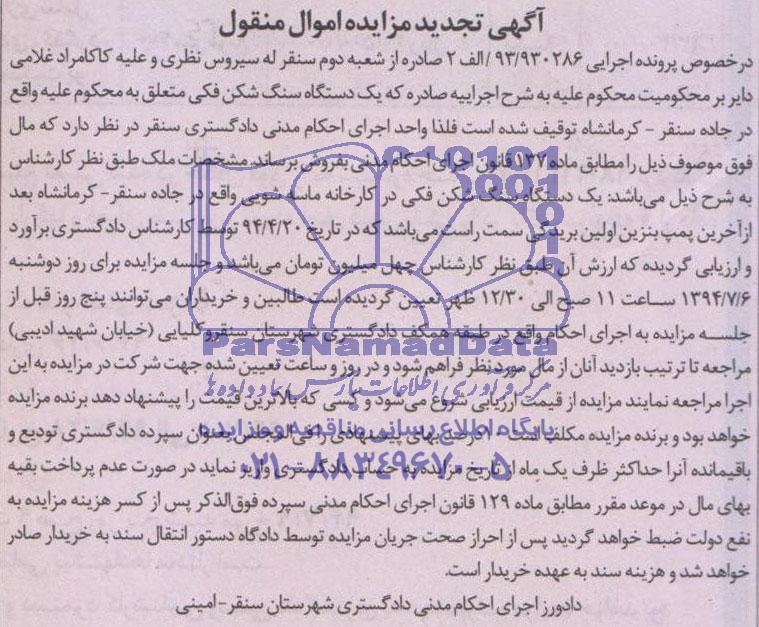 آگهی تجدید مزایده اموال منقول
درخصوص پرونده اجرایی ۹۳/۹۳۰۲۸۶ /الف ۲ صادره از شعبه دوم سنقر له سیروس نظری و علیه کاکامراد غلامی
دایر بر محکومیت محکوم علیه به شرح اجراییه صادره که یک دستگاه سنگ شکن فکی متعلق به محکوم علیه واقع
در جاده سنقر - کرمانشاه توقیف شده است فلذا واحد اجرای احکام مدنی دادگستری سنقر در نظر دارد که مال
فوق موصوف ذیل را مطابق ماده ۱۳۷ قانون اجرای احکام مدنی بفروش برساند. مشخصات ملک طبق نظر کارشناس
به شرح ذیل می‌باشد: یک دستگاه سنگ شکن فکی در کارخانه ماسه شویی واقع در جاده سنقر- کرمانشاه بعد
از آخرین پمپ بنزین اولین بریدگی سمت راست می‌باشد که در تاریخ ۹۴/۴/۲۰ توسط کارشناس دادگستری برآورد
و ارزیابی گردیده که ارزش آن طبق نظر کارشناس چهل میلیون تومان می‌باشد و جلسه مزایده برای روز دوشنبه
۱۳۹۴/۷/۶ ساعت ۱۱ صبح الی ۱۲/۳۰ ظهر تعیین گردیده است طالبین و خریداران می‌توانند پنج روز قبل از
جلسه مزایده به اجرای احکام واقع در طبقه همکف دادگستری شهرستان سنقروکلیایی (خیابان شهید ادیبی)
مراجعه تا ترتیب بازدید آنان از مال مورد نظر فراهم شود و در روز و ساعت تعیین شده جهت شرکت در مزایده به این
اجرا مراجعه نمایند مزایده از قیمت ارزیابی شروع می‌شود و کسی که بالاترین قیمت را پیشنهاد دهد برنده مزایده
خواهد بود و برنده مزایده مکلف است بهای پیشنهادی را فی‌المجلس بعنوان سپرده دادگستری تودیع و
باقیمانده آنرا حداکثر ظرف یک ماه از تاریخ مزایده به حساب دادگستری واریز نماید در صورت عدم پرداخت بقیه
بهای مال در موعد مقرر مطابق ماده ۱۲۹ قانون اجرای احکام مدنی سپرده فوق‌الذکر پس از کسر هزینه مزایده به
نفع دولت ضبط خواهد گردید پس از احراز صحت جریان مزایده توسط دادگاه دستور انتقال سند به خریدار صادر
خواهد شد و هزینه سند به عهده خریدار است.
دادورز اجرای احکام مدنی دادگستری شهرستان سنقر- امینی
ParsNamadData
مرکز فرآوری اطلاعات پارس نماد داده ها
پایگاه اطلاع رسانی مناقصه و مزایده
۰۲۱-۸۸۳۴۹۶۷۰-۵